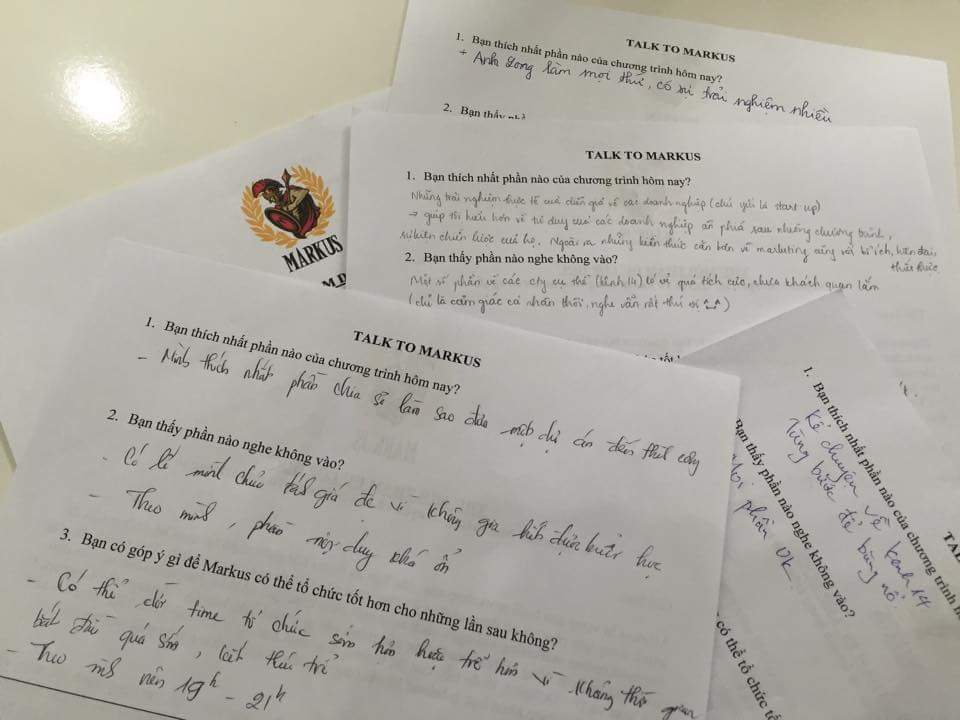 TALK TO MARKUS
1. Bạn thích nhất phần nào của chương trình hôm nay?
+ Anh Long làm mọi thứ, có sự trải nghiệm nhiều
2. Bạn thấy
TALK TO MARKUS
1. Bạn thích nhất phần nào của chương trình hôm nay?
Những trải nghiệm thực tế của diễn giả về các doanh nghiệp (chủ yếu là start up)
→ giúp tôi hiểu hơn về tư duy của các doanh nghiệp ẩn phía sau những chương trình,
sự kiện chiến lược của họ. Ngoài ra những kiến thức căn bản về marketing cũng rất bổ ích, hiện đại,
thiết thực
2. Bạn thấy phần nào nghe không vào?
Một số phần về các cty cụ thể (kênh 14) có vẻ quá tích cực, chưa khách quan lắm
(chỉ là cảm giác cá nhân thôi, nghe vẫn rất thú vị ^_^)
MARKUS
TALK TO MARKUS
1. Bạn thích nhất phần nào của chương trình hôm nay?
- Mình thích nhất phần chia sẻ làm sao đưa một dự án đến thành công
2. Bạn thấy phần nào nghe không vào?
- Có lẽ mình chưa đánh giá đc vì không
- Theo mình, phần này duy khá ổn
3. Bạn có góp ý gì để Markus có thể tổ chức tốt hơn cho những lần sau không?
- Có thể dời time tổ chức sớm hơn hoặc trễ hơn vì không
bắt đầu quá sớm, kết thúc trễ
- Theo mình nên 19h - 21h
1. Bạn thích nhất phần nào của chương trình h
Kể chuyện về kenh14
Từng bước để bùng nổ.
Bạn thấy phần nào nghe không vào?
Mọi phần Ok
có thể tổ chức tố